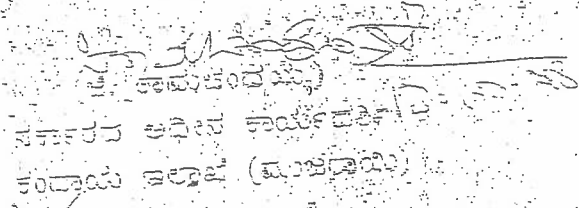 ರಾಮಚಂದ್ರಯ್ಯ)
ಸರ್ಕಾರದ ಅಧೀನ ಕಾರ್ಯದರ್ಶಿ
ಕಂದಾಯ ಇಲಾಖೆ (ಮುಜರಾಯಿ)